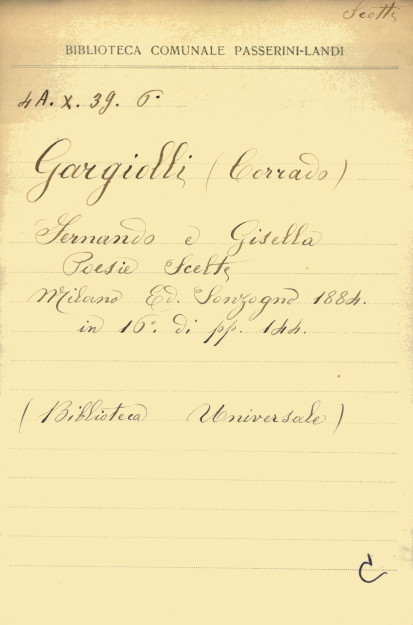 Scotti
BIBLIOTECA COMUNALE PASSERINI-LANDI
4A. X. 39. 6.
Gargiolli (Corrado)
Fernando e Gisella
Poesie Scelte
Milano Ed. Sonzogno 1884.
in 16°. di pp. 144.
(Biblioteca Universale)
C